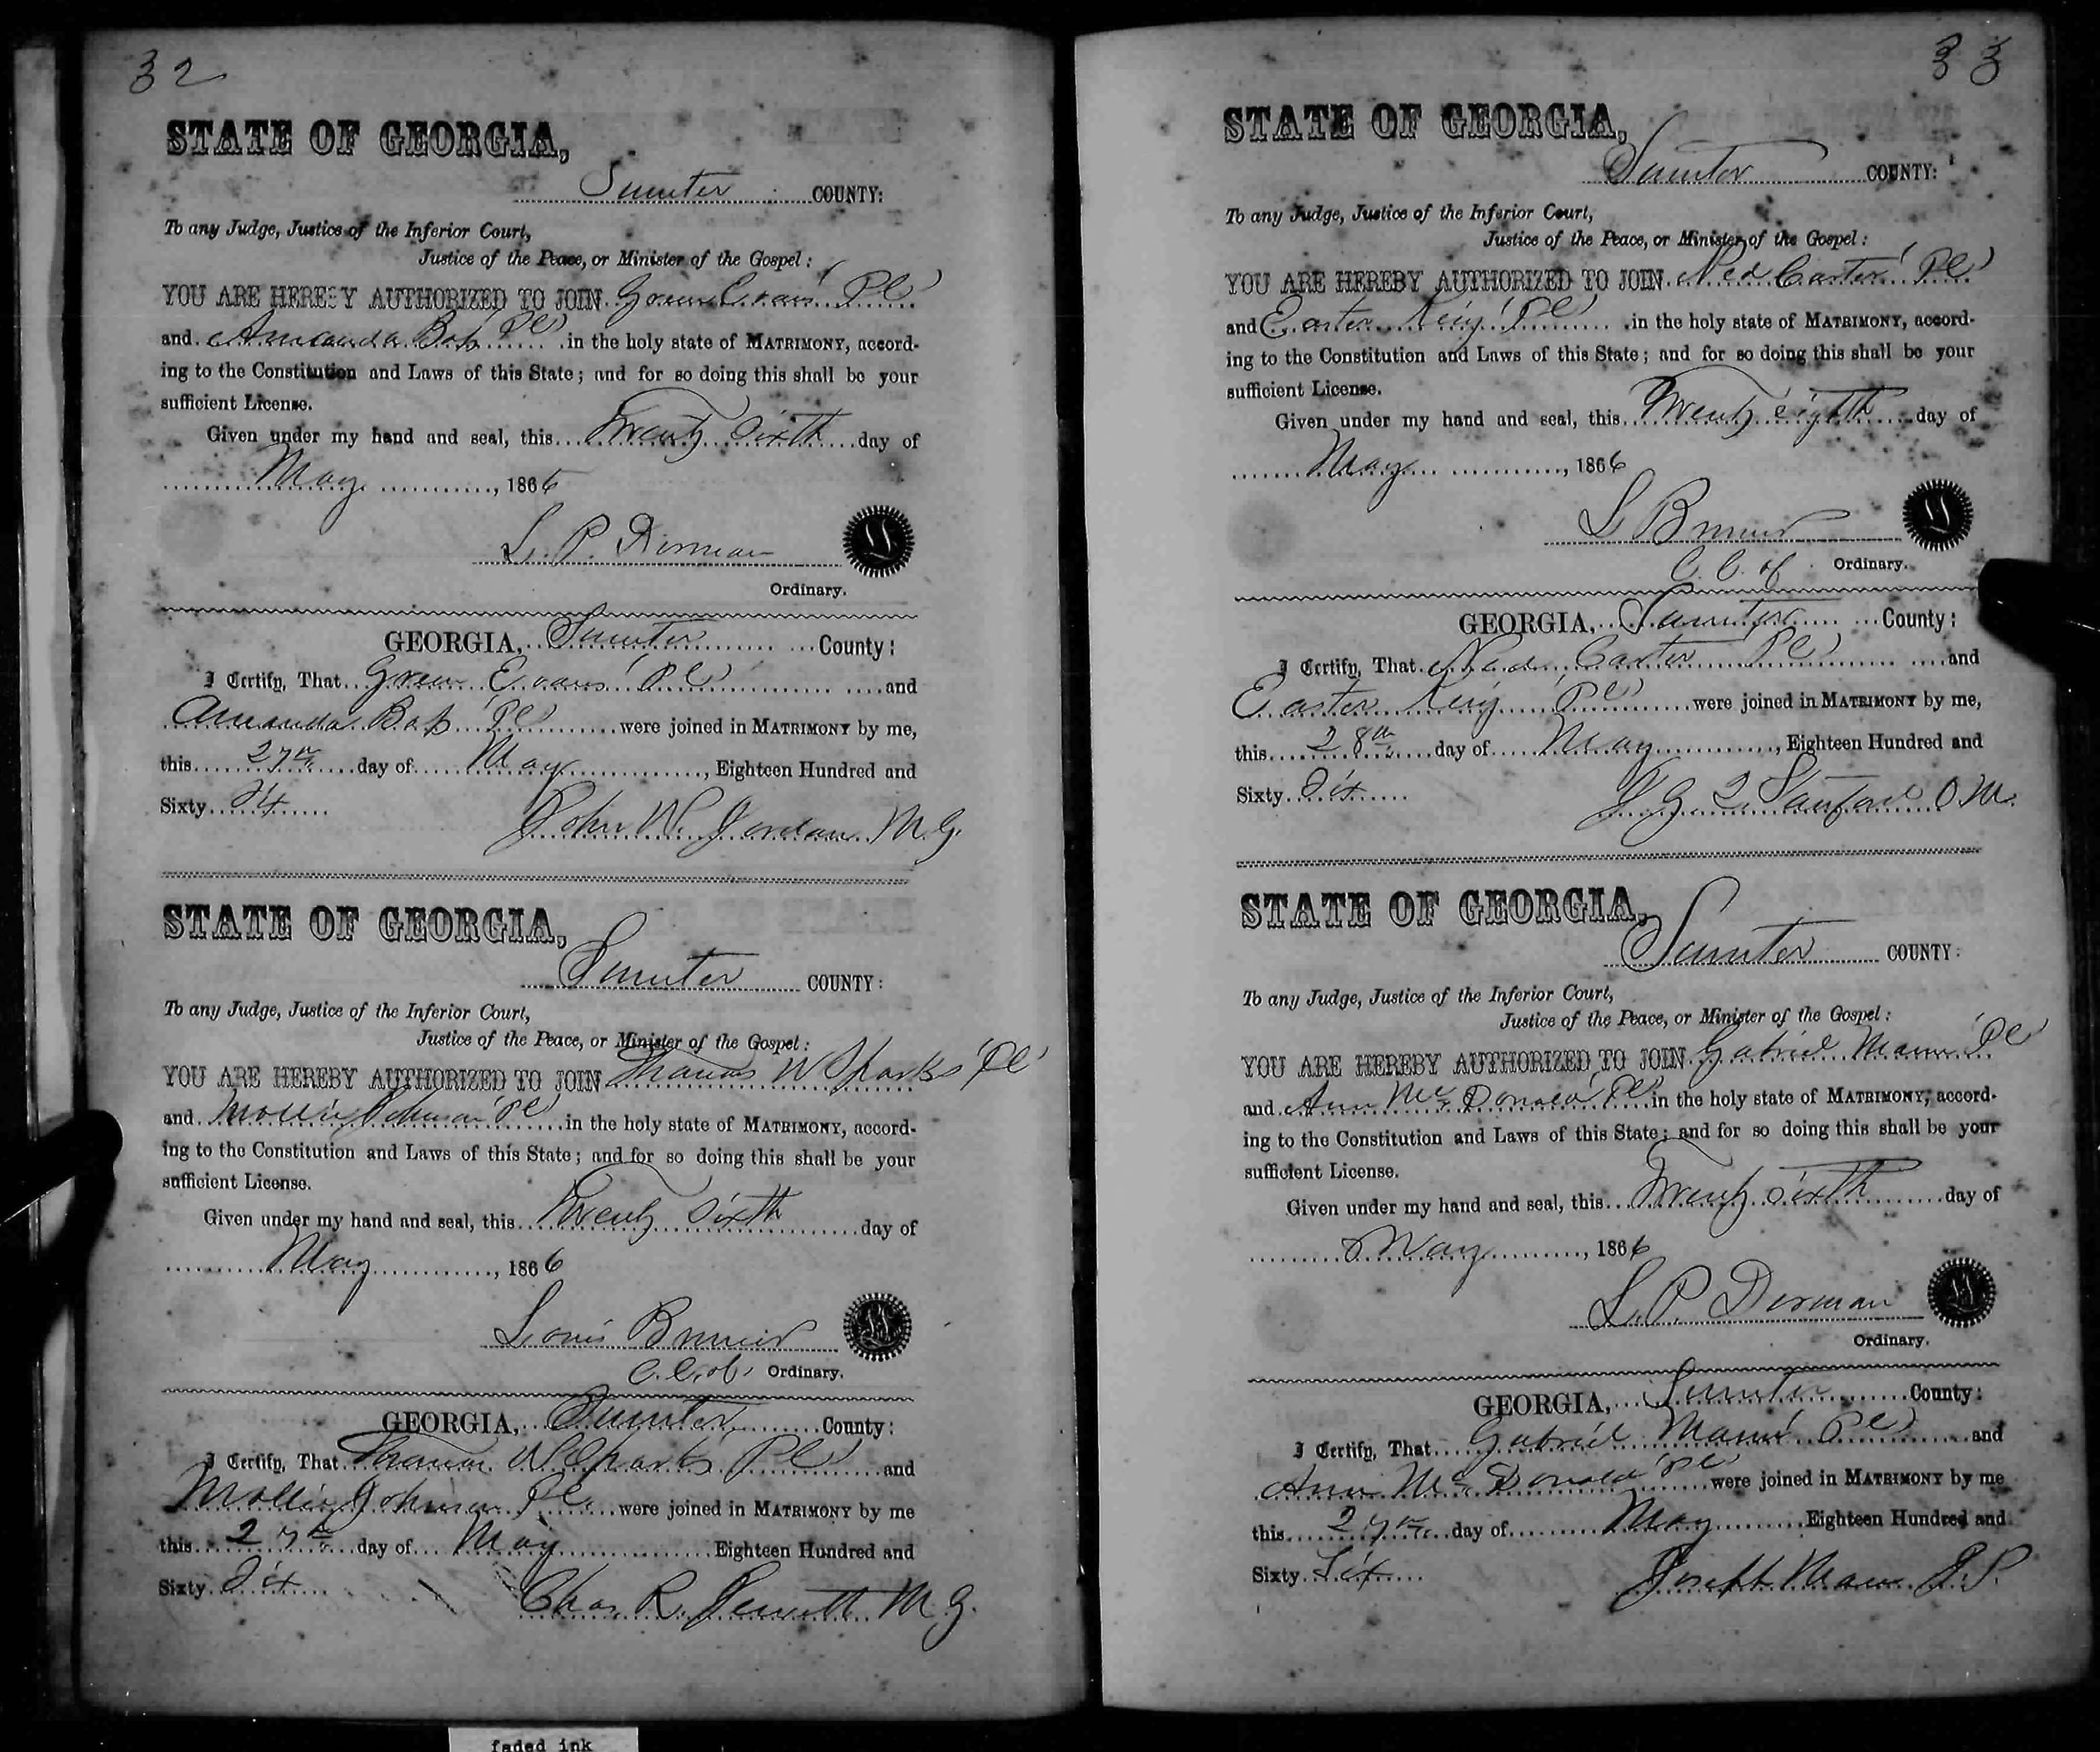 32
STATE OF GEORGIA,
Sumter COUNTY:
To any Judge, Justice of the Inferior Court,
Justice of the Peace, or Minister of the Gospel:
YOU ARE HEREBY AUTHORIZED TO JOIN Green Evans
and Amanda in the holy state of MATRIMONY, accord-
ing to the Constitution and Laws of this State; and for so doing this shall be your
sufficient License.
Given under my hand and seal, this Twenty Sixth day of
May, 1866
L. P. Dorman
Ordinary.
GEORGIA, Sumter County:
I Certify, That Green Evans and
Amanda were joined in MATRIMONY by me,
this 27th day of May, Eighteen Hundred and
Sixty Six
John W. Jordan M.G.
STATE OF GEORGIA,
Sumter COUNTY:
To any Judge, Justice of the Inferior Court,
Justice of the Peace, or Minister of the Gospel:
YOU ARE HEREBY AUTHORIZED TO JOIN Thomas W Sparks
and Mollie Johnson in the holy state of MATRIMONY, accord-
ing to the Constitution and Laws of this State; and for so doing this shall be your
sufficient License.
Given under my hand and seal, this Twenty Sixth day of
May, 1866
Louis
Ordinary.
GEORGIA, Sumter County:
I Certify, That Thomas W Sparks and
Mollie Johnson were joined in MATRIMONY by me
this 27th day of May Eighteen Hundred and
Sixty Six
Chas R. Jewett M.G.
33
STATE OF GEORGIA,
Sumter COUNTY:
To any Judge, Justice of the Inferior Court,
Justice of the Peace, or Minister of the Gospel:
YOU ARE HEREBY AUTHORIZED TO JOIN Ned Carter
and Easter King in the holy state of MATRIMONY, accord-
ing to the Constitution and Laws of this State; and for so doing this shall be your
sufficient License.
Given under my hand and seal, this Twenty eighth day of
May, 1866
L
Ordinary.
GEORGIA, Sumter County:
I Certify, That Ned Carter and
Easter King were joined in MATRIMONY by me,
this 28th day of May, Eighteen Hundred and
Sixty Six
O.M.
STATE OF GEORGIA,
Sumter COUNTY:
To any Judge, Justice of the Inferior Court,
Justice of the Peace, or Minister of the Gospel:
YOU ARE HEREBY AUTHORIZED TO JOIN Gabriel Mann
and Ann McDonald in the holy state of MATRIMONY, accord-
ing to the Constitution and Laws of this State; and for so doing this shall be your
sufficient License.
Given under my hand and seal, this Twenty sixth day of
May, 1866
L. P. Dorman
Ordinary.
GEORGIA, Sumter County:
I Certify, That Gabriel Mann and
Ann McDonald were joined in MATRIMONY by me
this 27th day of May Eighteen Hundred and
Sixty Six
Joseph Mann J.P.
faded ink